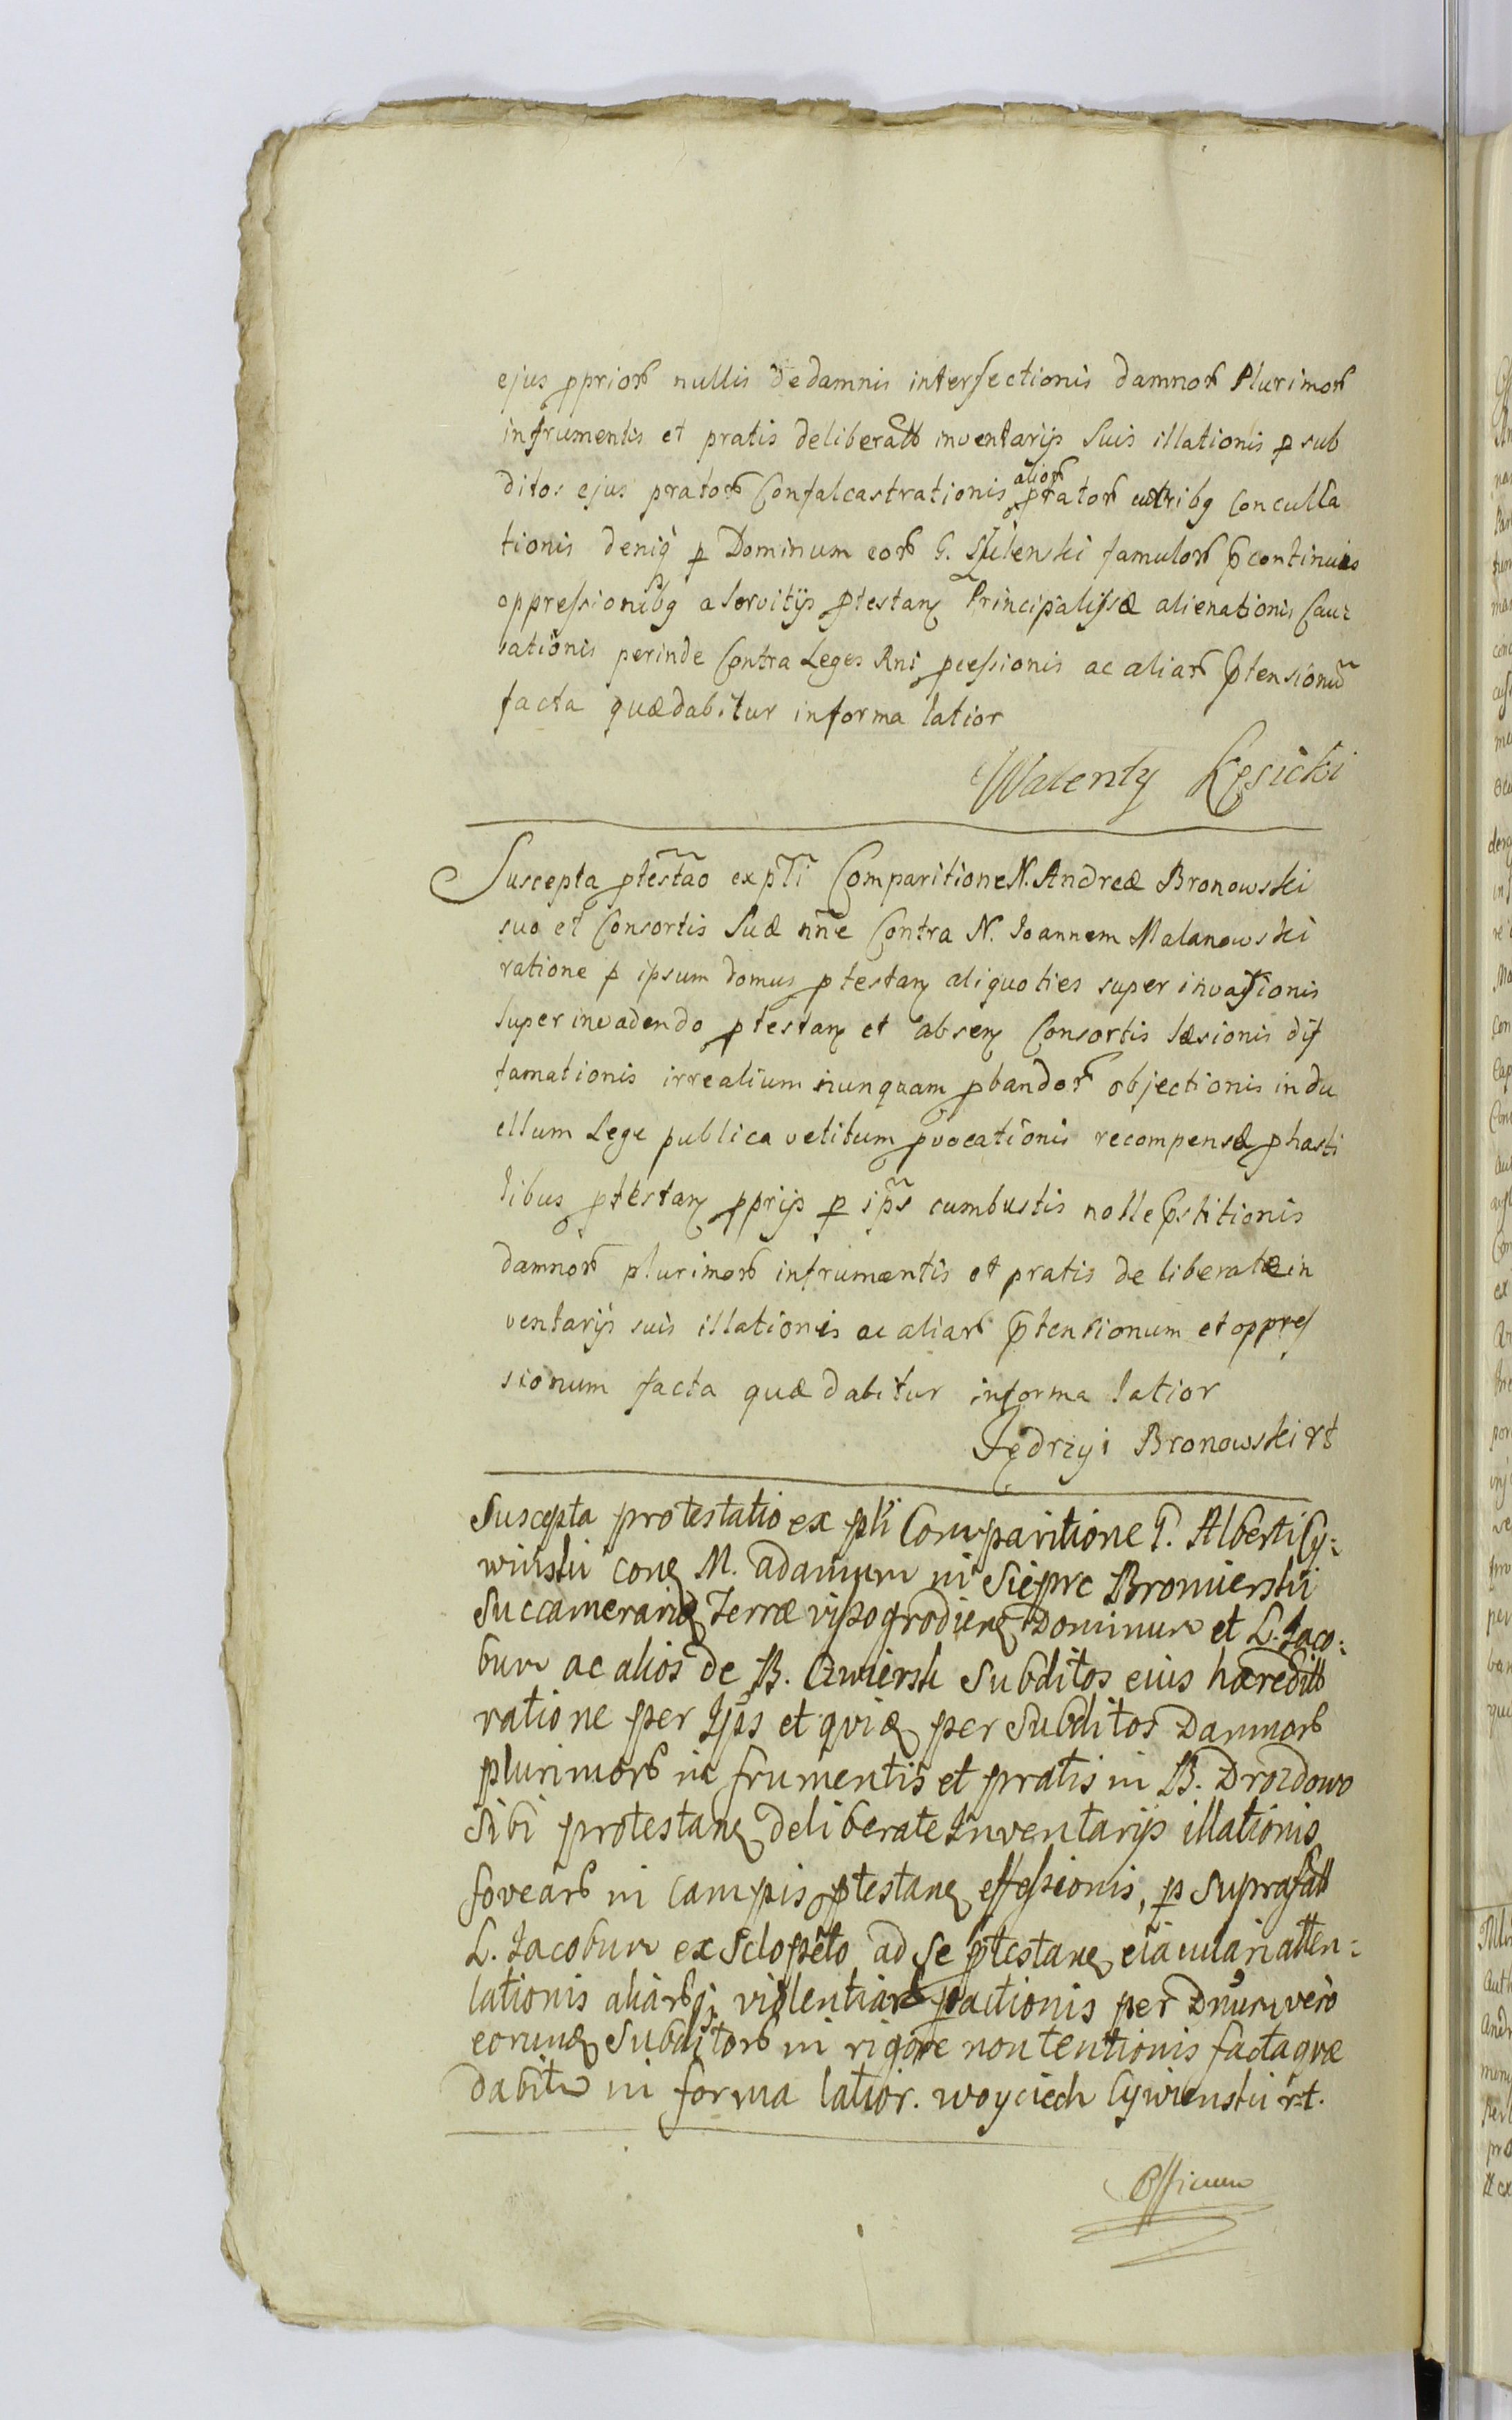 ejus ppriorũ nullis de damnis interfectionis damnorũ Plurimorũ
infrumentis et pratis deliberatt inventarijs Suis illationis p sub
ditos ejus pratorũ Confalcastrationis aliorũ pratorũ conculca
tionis deniq p Dominum eorũ G. famulorũ continuis
oppressionibq a Servitijs ptestan Principalissæ alienationis Cau:
sationis perinde Contra Leges Rni pcessionis ac aliarũ ptensionũ
facta quædabitur informa latior
Walenty Kęsicki
Suscepta ptestao ex płi Comparitione N. Andreæ Bronowski
suo et Consortis Suæ nñe Contra N. Joannem Malanowski
ratione p ipsum domus ptestan aliquoties super invasionis
super invadendo ptestan et absen Consortis læsionis dif
famationis irrealium nunquam pbandorũ objectionis in du
ellum Lege publica vetitum pvocationis recompensæ p hasti
libus ptestan pprijs p ips cumbustis nolle pstitionis
damnorũ plurimorũ infrumentis et pratis de liberatæ in
ventarijs suis illationis ac aliarũ ptensionum et oppres
sionum facta quæ dabitur informa latior
Jędrzyi Bronowski rt
Suscepta protestatio ex płi Comparitione G. Alberti Cy:
winski con M. adamum in Sieprc Bromierski
Succamerariũ Terræ viszogrodien Dominum et L. Jaco:
bum ac alios de B. Cwiersk Subditos eius hæreditt
ratione per Ips et qviæ per Subditos Damnorũ
plurimorũ in frumentis et pratis in B. Drozdowo
sibi protestan deliberate Inventarijs illationis
fovearũ in campis ptestan effossionis, p Suprafatt
L. Jacobum ex Sclopeto ad se ptestan eiaculari atten:
tationis aliarũq; violentiarũ pactionis per Dnum vero
eorum Subditorũ in rigore non tentionis facta qvæ
dabitur in forma latior. woyciech Cywienski rt.
Officium